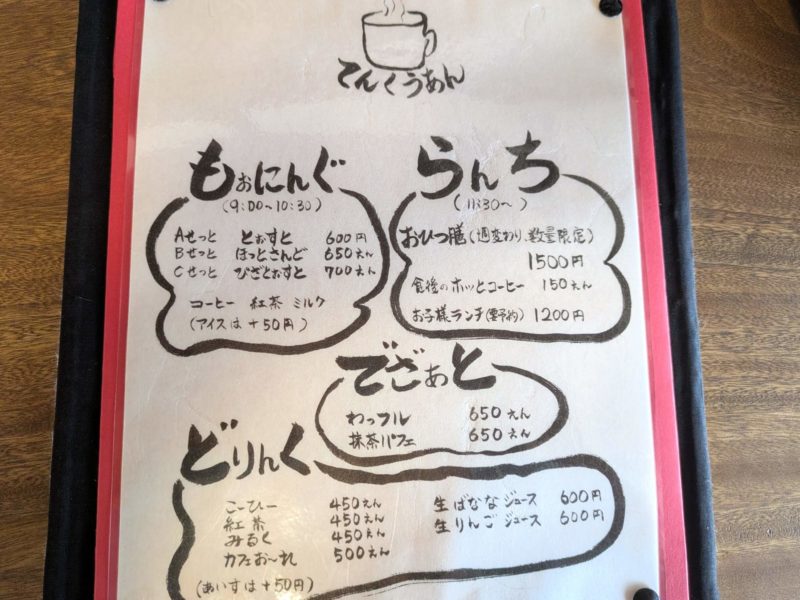 てんくうあん
もぉにんぐ
(9:00~10:30)
Aせっと とぉすと 600円
Bせっと ほっとさんど 650えん
Cせっと ぴざとぉすと 700えん
コーヒー 紅茶 ミルク
(アイスは+50円)
らんち
(11:30~)
おひつ膳(週変わり、数量限定)
1500円
食後のホッとコーヒー 150えん
お子様ランチ(要予約) 1200円
でざぁと
わっフル 650えん
抹茶パフェ 650えん
どりんく
こーひー 450えん
紅茶 450えん
みるく 450えん
カフェお〜れ 500えん
(あいすは+50円)
生ばななジュース 600円
生りんごジュース 600円